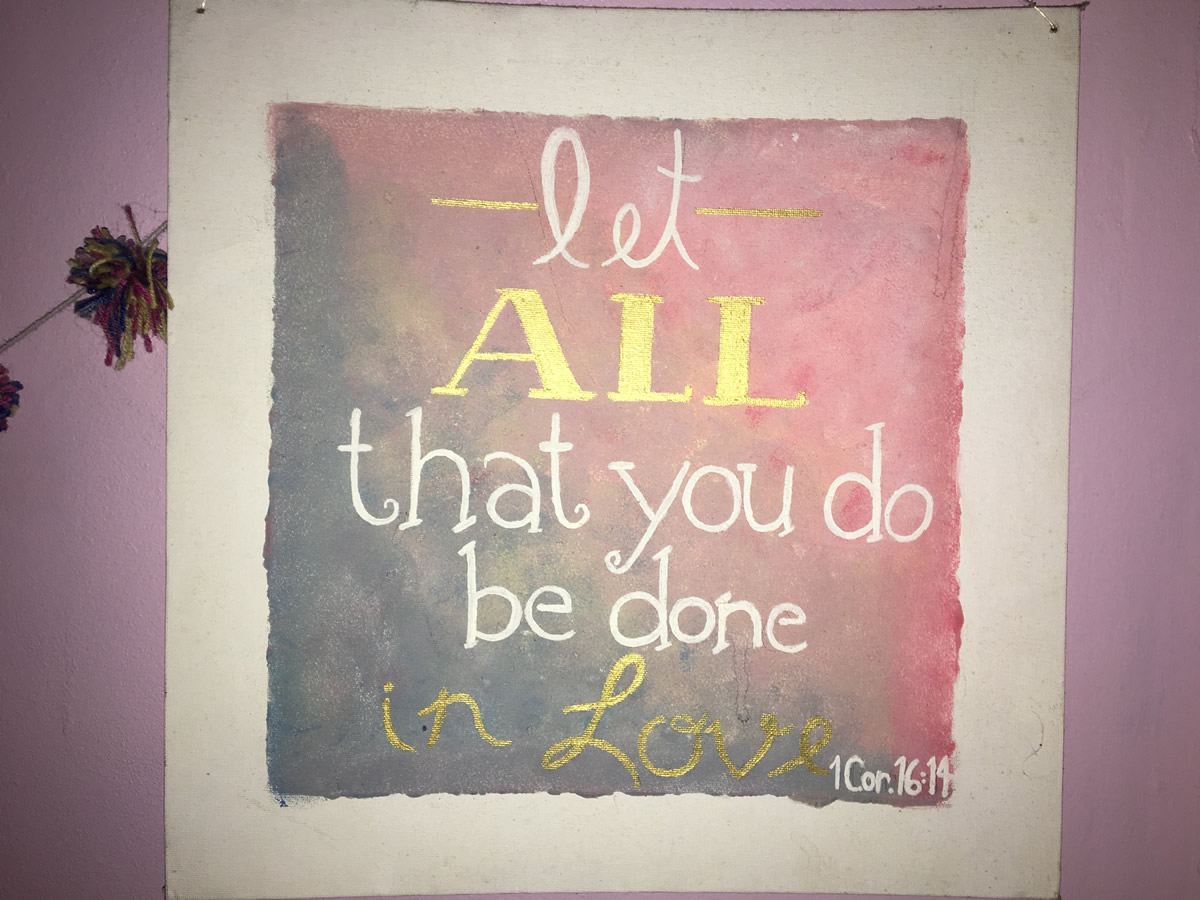 let
ALL
that you do
be done
in Love
1 Cor. 16:14